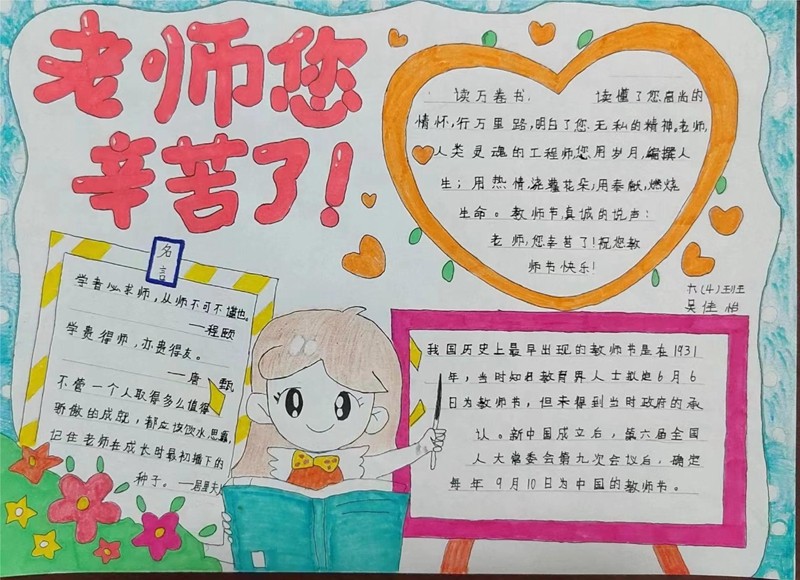 老师您
辛苦了！
读万卷书，读懂了您高尚的
情怀，行万里路，明白了您无私的精神。老师，
人类灵魂的工程师，您用岁月，编撰人
生；用热情，浇灌花朵；用奉献，燃烧
生命。教师节真诚的说声：
老师，您辛苦了！祝您教
师节快乐！
六（4）班
吴佳怡
名言
学者必求师，从师不可不谨也。
——程颐
学贵得师，亦贵得友。
——唐甄
不管一个人取得多么值得
骄傲的成就，都应该饮水思源，
记住老师在成长时最初播下的
种子。——居里夫人
我国历史上最早出现的教师节是在1931
年，当时知名教育界人士拟定6月6
日为教师节，但未得到当时政府的承
认。新中国成立后，第六届全国
人大常委会第九次会议后，确定
每年9月10日为中国的教师节。